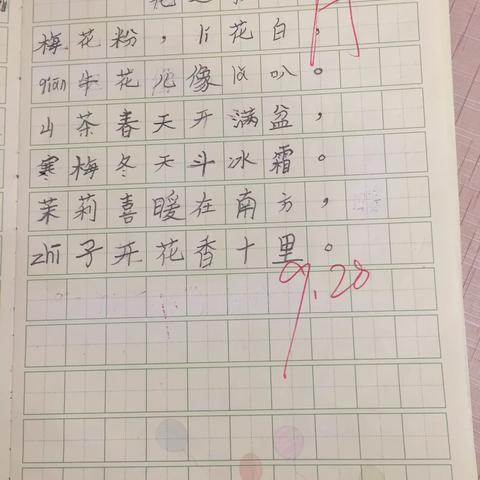 梅花粉，lí花白，
qiān牛花儿像lǎ叭。
山茶春天开满盆，
寒梅冬天斗冰霜。
茉莉喜暖在南方，
zhī子开花香十里。
9.28